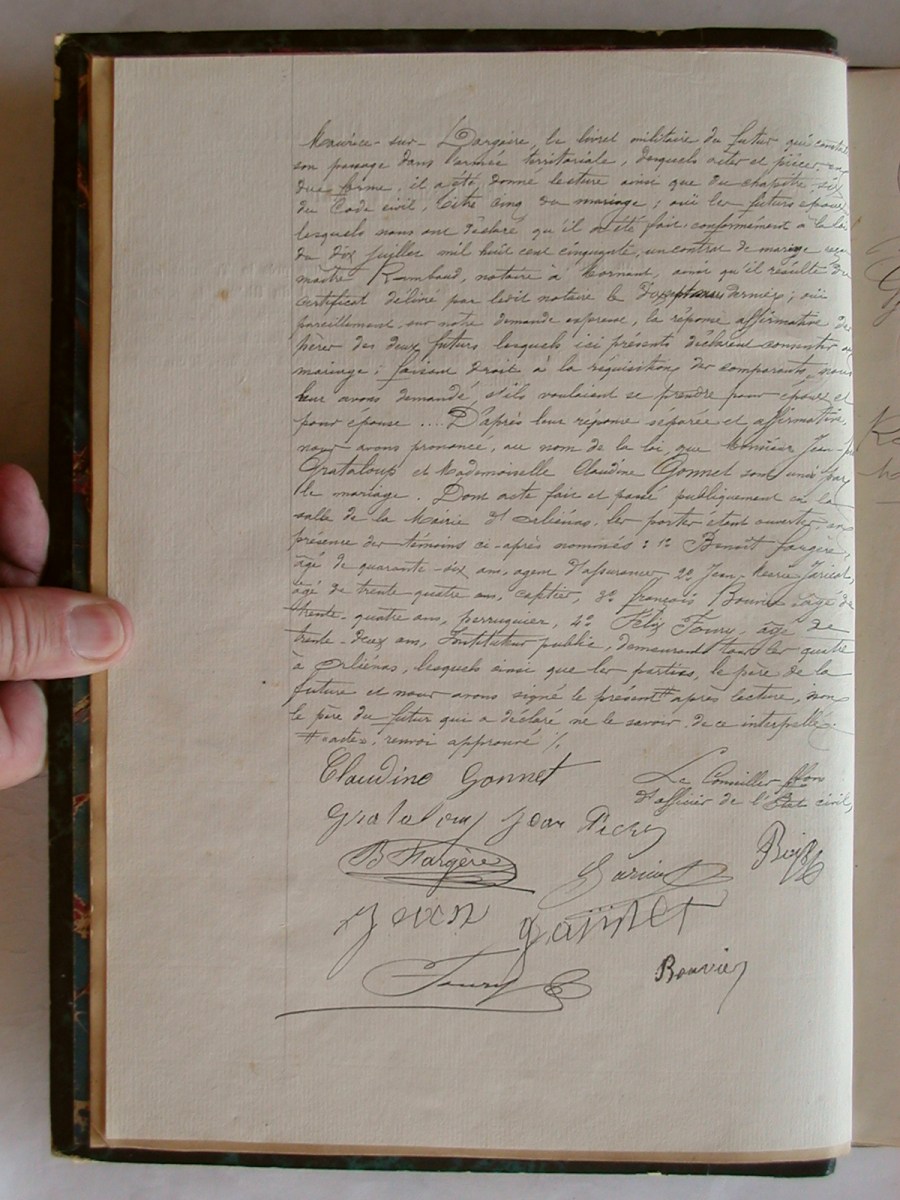 Maurice-sur-Dargoire, le livret militaire du futur qui constate
son passage dans l'armée territoriale, desquels actes et pièces en
due forme, il a été donné lecture ainsi que du chapitre six
du Code civil, titre cinq du mariage; ouï les futurs époux
lesquels nous ont déclaré qu'il a été fait conformément à la loi
du dix juillet mil huit cent cinquante, un contrat de mariage reçu
maître Rambaud, notaire à Mornant, ainsi qu'il résulte du
certificat délivré par ledit notaire le dernier; ouï
pareillement, sur notre demande expresse, la réponse affirmative des
pères des deux futurs lesquels ici présents déclarent consentir au
mariage; faisant droit à la réquisition des comparants, nous
leur avons demandé, s'ils voulaient se prendre pour époux et
pour épouse .... D'après leur réponse séparée et affirmative,
nous avons prononcé, au nom de la loi, que Monsieur Jean-
Grataloup et Mademoiselle Claudine Gonnet sont unis par
le mariage. Dont acte fait et passé publiquement en la
salle de la Mairie d'Orliénas, les portes étant ouvertes, en
présence des témoins ci-après nommés: 1º Benoît Fargère,
âgé de quarante-six ans, agent d'assurances, 2º Jean-Marie Jaricot,
âgé de trente-quatre ans, 3º François Bouvier âgé de
trente-quatre ans, perruquier, 4º Félix Foury, âgé de
trente-deux ans, Instituteur public, demeurant tous les quatre
à Orliénas, lesquels ainsi que les parties, le père de la
future et nous avons signé le présent # après lecture, non
le père du futur qui a déclaré ne le savoir, de ce interpellé.
# acte, renvoi approuvé /.
Claudine Gonnet
Le Conseiller ffons
d'officier de l'État civil,
Grataloup Jean Pichy
B Fargère
Jean Gonnet
Foury
Bouvier